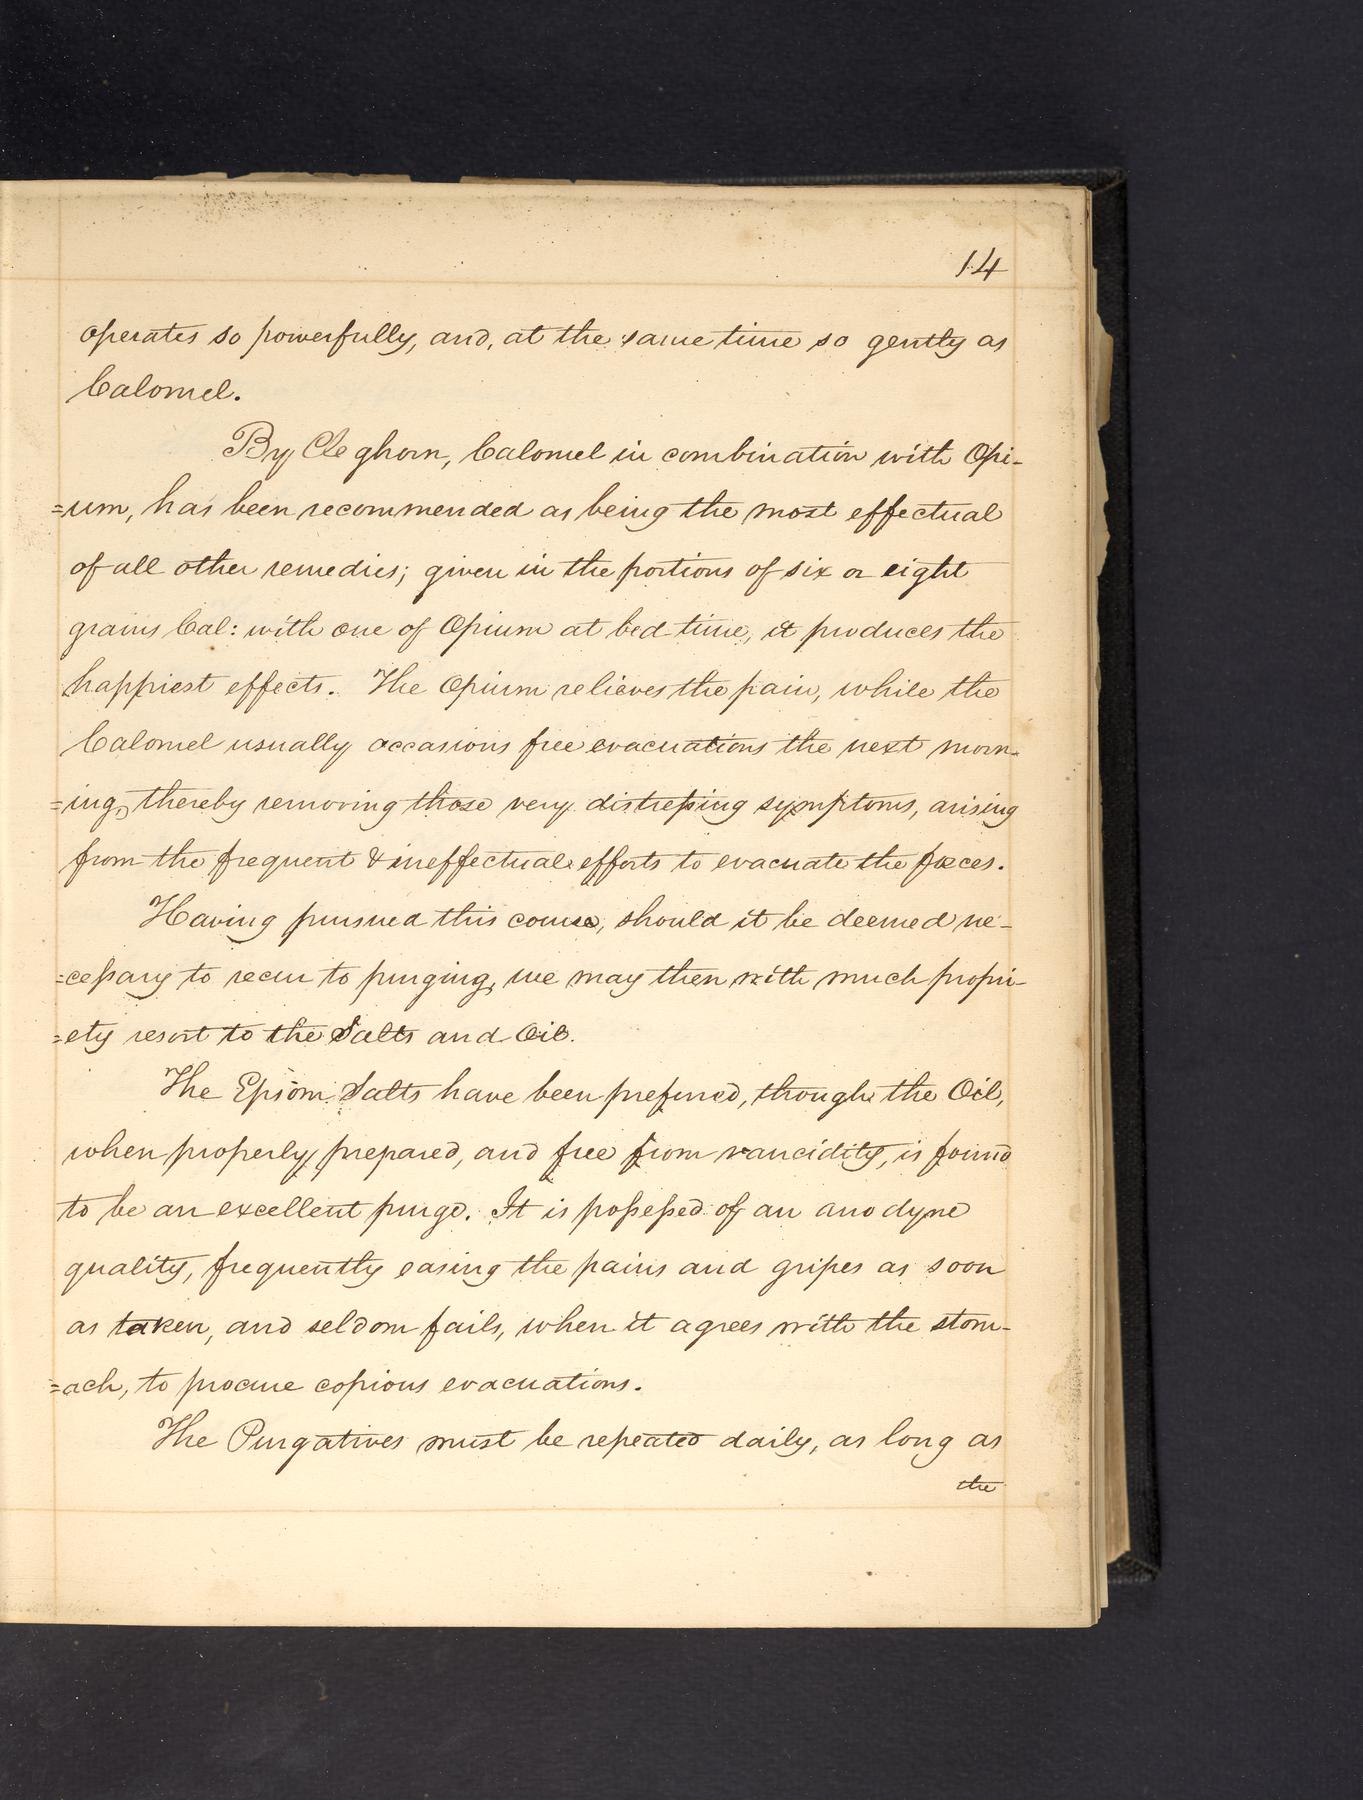 14
operates so powerfully, and, at the same time so gently as
Calomel.
By Cleghorn, Calomel in combination with Opi-
=um, has been recommended as being the most effectual
of all other remedies; given in the portions of six or eight
grains Cal: with one of Opium at bed time, it produces the
happiest effects. The Opium relieves the pain, while the
Calomel usually occasions free evacuations the next morn-
=ing, thereby removing those very distressing symptoms, arising
from the frequent & ineffectual efforts to evacuate the fæces.
Having pursued this course, should it be deemed ne-
=cessary to recur to purging, we may then with much propri-
=ety resort to the Salts and Oil.
The Epsom Salts have been preferred, though the Oil,
when properly prepared, and free from rancidity, is found
to be an excellent purge. It is possessed of an anodyne
quality, frequently easing the pains and gripes as soon
as taken, and seldom fails, when it agrees with the stom-
=ach, to procure copious evacuations.
The Purgatives must be repeated daily, as long as
the